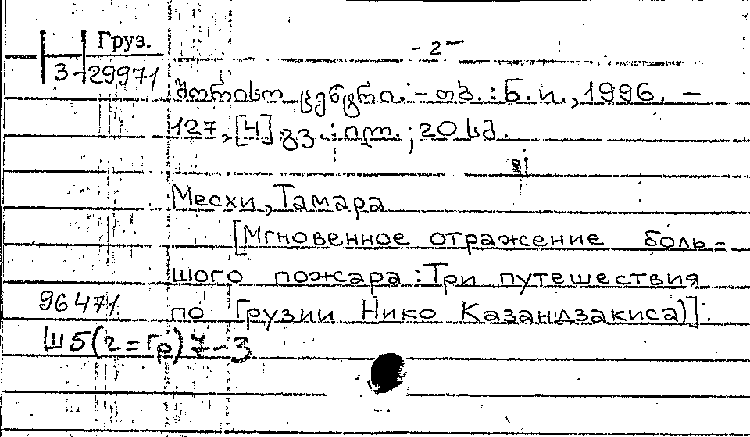 Груз.
- 2 -
3-29971
შორისო ცენტრი. - თბ. : Б.и., 1996. -
127, [4] გვ. : ილ. ; 20 სმ.
Месхи, Тамара
[Мгновенное отражение боль-
шого пожара : Три путешествия
96471
по Грузии Нико Казандзакиса)].
Ш5(2=Гр)7-3